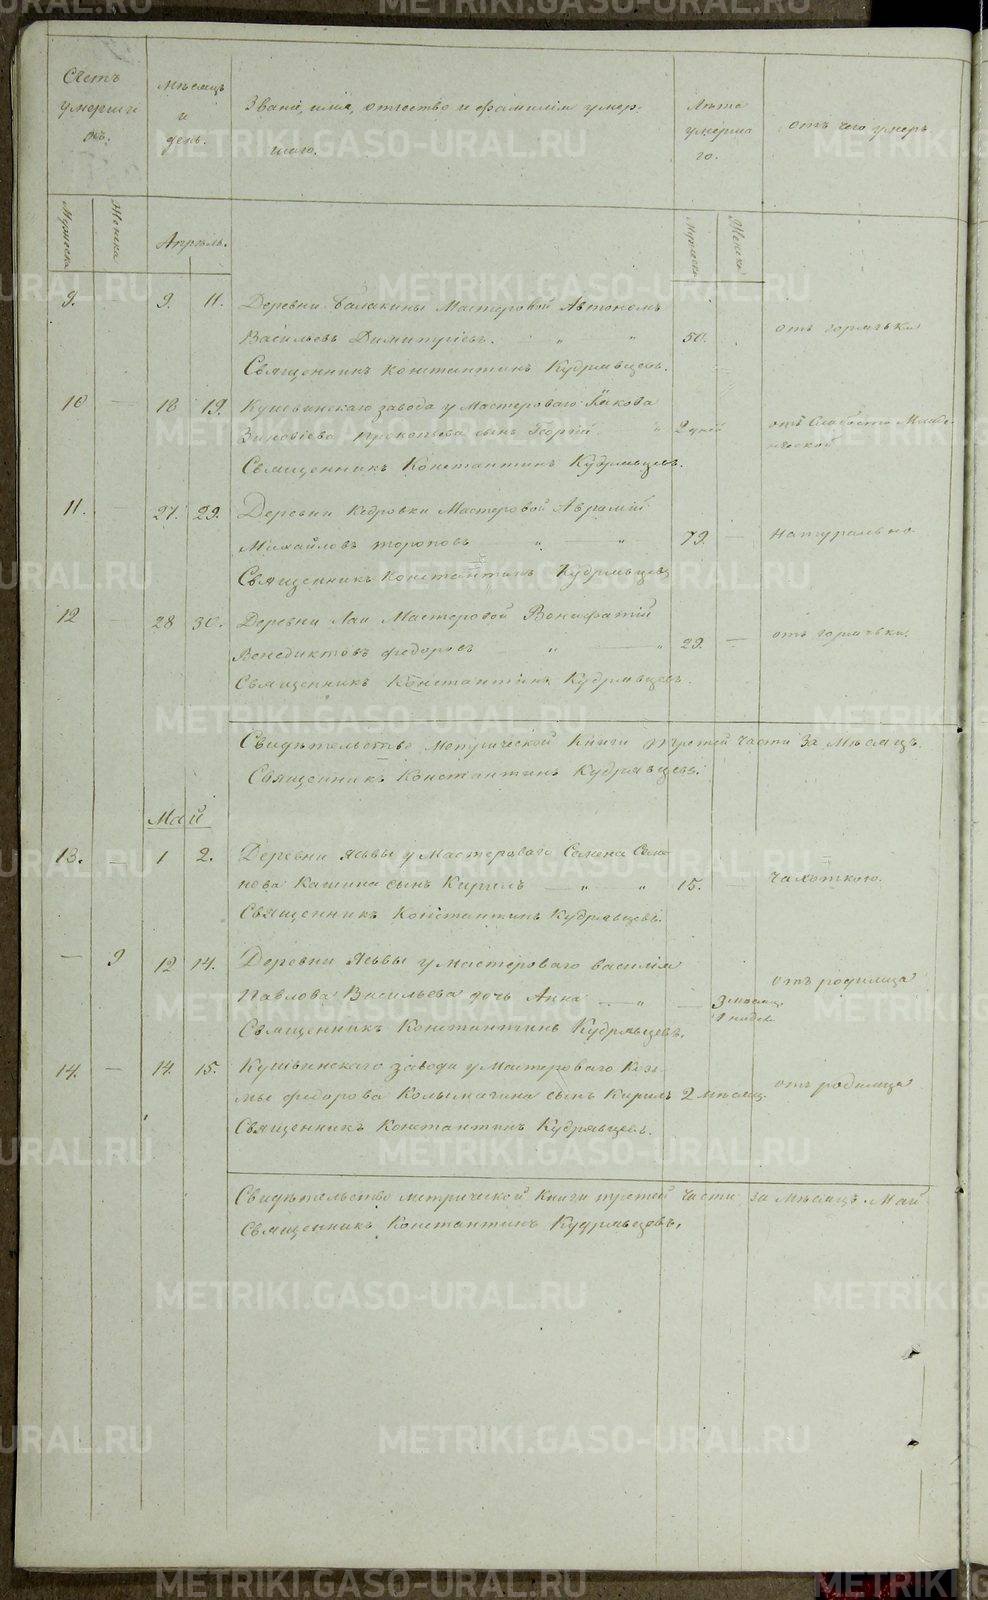 Счетъ умерши
хъ.
Мѣсяцъ
и
день.
Званіе, имя, отчество и фамилія умер-
шаго.
Лѣта
умерша
го.
отъ чего умеръ
Мужеска
Женска
Апрѣль.
Мужеска
Женска
9. 9. 11. Деревни Балакины Мастеровой Автономъ
Васильевъ Димитріевъ. 50. отъ горячьки
Священникъ Константинъ Кудрявцевъ.
10 — 18 19. Кушвинскаго завода у Мастероваго Іакова
Зиновіева Прокопьева сынъ Георгій 2 дней отъ Слабости Младе-
нческой
Священникъ Константинъ Кудрявцевъ.
11. — 27. 29. Деревни Кедровки Мастеровой Аврамій
Михайловъ Тороповъ 79. — Натурально
Священникъ Константинъ Кудрявцевъ
12 — 28 30. Деревни Лаи Мастеровой Вонифатій
Венедиктовъ Федоровъ 29. — отъ горячьки.
Священникъ Константинъ Кудрявцевъ.
Свидѣтельство Метрической Книги третей части За Мѣсяцъ
Священникъ Константинъ Кудрявцевъ.
Май
13. — 1 2. Деревни Ясьвы у Мастероваго Семена Семе-
нова Кашина сынъ Кирилъ 15. Чахоткою.
Священникъ Константинъ Кудрявцевъ.
— 9 12 14. Деревни Ясьвы у Мастероваго Василія
Павлова Васильева дочь Анна — 3 мѣсяц.
1 недел. отъ родимца
Священникъ Константинъ Кудрявцевъ.
14. — 14. 15. Кушвинскаго завода у Мастероваго Козь-
мы Федорова Колымагина сынъ Кирилъ 2 мѣсяц. отъ родимца
Священникъ Константинъ Кудрявцевъ.
Свидѣтельство метрической Книги третей части за Мѣсяцъ Май
Священникъ Константинъ Кудрявцевъ.
METRIKI.GASO-URAL.RU